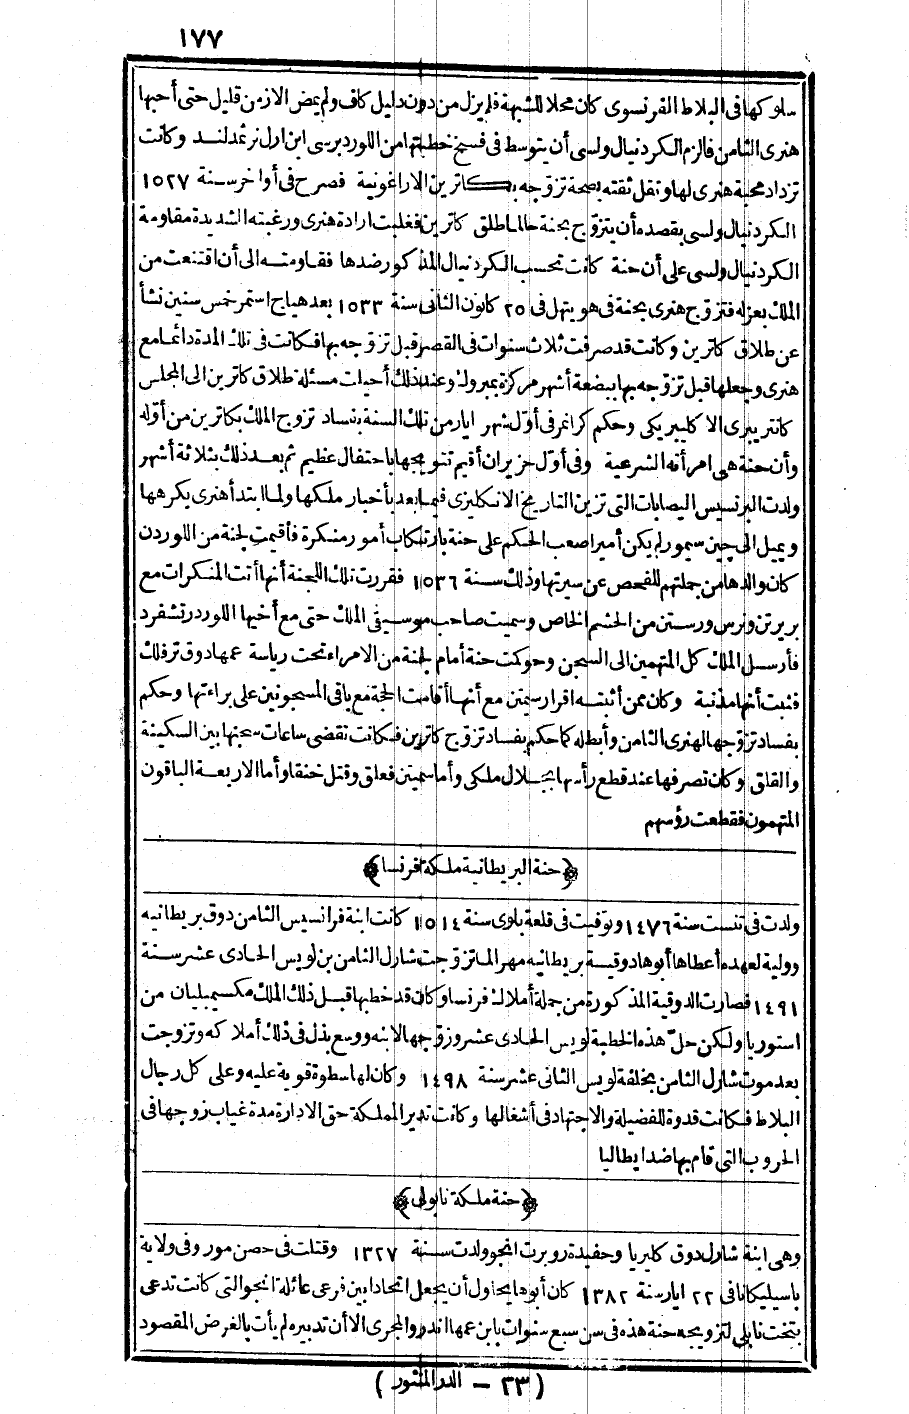 ١٧٧
سلوكها فى البلاط الفرنسوى كان محلا للشبهة فلم يزل من دون دليل كاف ولم يمض الا زمن قليل حتى أحبها
هنرى الثامن فألزم الكردنيال ولسى أن يتوسط فى فسخ خطبتها من اللورد برسى ابن ارل نرثمدلند وكانت
تزداد محبة هنرى لها وتقل ثقته بصحة تزوّجه بكاترين الاراغونية فصرح فى أواخر سنة ١٥٢٧
الكردنيال ولسى بقصده أن يتزوّج بحنة حالما طلق كاترين فغلبت ارادة هنرى ورغبته الشديدة مقاومة
الكردنيال ولسى على أن حنة كانت تحسب الكردنيال المذكور ضدها فقاومته الى أن اقتنعت من
الملك بعزله فتزوّج هنرى بحنة فى هو يتهل فى ٢٥ كانون الثانى سنة ١٥٣٣ بعد هياج استمر خمس سنين نشأ
عن طلاق كاترين وكانت قد صرفت ثلاث سنوات فى القصر قبل تزوّجه بها فكانت فى تلك المدة دائما مع
هنرى وجعلها قبل تزوّجه بها ببضعة أشهر مركزة بمبروك وعند ذلك أحيات مسئلة طلاق كاترين الى المجلس
كانتربرى الا كليريكى وحكم كرانمر فى أوّل شهر ايار من تلك السنة بفساد تزوج الملك بكاترين من أوّله
وأن حنة هى امرأته الشرعية وفى أوّل حزيران أقيم تتويجها باحتفال عظيم ثم بعد ذلك بثلاثة أشهر
ولدت البرنسيس اليصابات التى تزين التاريخ الانكليزى فيما بعد بأخبار ملكها ولما ابتدأ هنرى يكرهها
ويميل الى چين سيمور لم يكن أمر اصعب الحكم على حنة بارتكاب أمور منكرة فأقيمت لجنة من اللوردن
كان والدها من جملتهم للفحص عن سيرتها وذلك سنة ١٥٣٦ فقررت تلك اللجنة أنها أتت المنكرات مع
بريرتن ونرس ورستن من الحشم الخاص وسميت صاحب موسيقى الملك حتى مع أخيها اللورد رتشفرد
فأرسل الملك كل المتهمين الى السجن وحوكمت حنة أمام لجنة من الامراء تحت رياسة عمها دوق نرفلك
فثبت أنها مذنبة وكان ممن أثبته اقرار سميتن مع أنها أقامت الحجة مع باقى المسجونين على براءتها وحكم
بفساد تزوّجها لهنرى الثامن وأبطله كما حكم بفساد تزوّج كاترين فكانت تقضى ساعات سجنها بين السكينة
والقلق وكان تصرفها عند قطع رأسها بجلال ملكى وأما سميتن فعلق وقتل خنقا وأما الاربعة الباقون
المتهمون فقطعت رؤسهم
﴿حنة البريطانية ملكة فرنسا﴾
ولدت فى تنست سنة ١٤٧٦ وتوفيت فى قلعة بلوى سنة ١٥١٤ كانت ابنة فرانسيس الثامن دوق بريطانيه
وولية لعهده أعطاها أبوها دوقية بريطانيه مهر الما تزوّجت شارل الثامن بن لويس الحادى عشر سنة
١٤٩١ فصارت الدوقية المذكورة من جملة أملاك فرنسا وكان قد خطبها قبل ذلك الملك مكسيمليان من
استوريا ولكن حلّ هذه الخطبة لويس الحادى عشر وزوّجها لابنه ووسع بذل فى ذلك أملاكه وتزوجت
بعد موت شارل الثامن بخلفة لويس الثانى عشر سنة ١٤٩٨ وكان لها سطوة قوية عليه وعلى كل رجال
البلاط فكانت قدوة للفضيلة والاجتهاد فى أشغالها وكانت تدير المملكة حق الادارة مدة غياب زوجها فى
الحروب التى قام بها ضد ايطاليا
﴿حنة ملكة نابولى﴾
وهى ابنة شارل دوق كلبريا وحفيدة روبرت انجو ولدت سنة ١٣٢٧ وقتلت فى حصن مورو فى ولاية
باسيليكانا فى ٢٢ ايار سنة ١٣٨٢ كان أبوها يحاول أن يجعل اتحادا بين فرعى عائلة انجو التى كانت تدعى
بتخت نابلى لتزويجه حنة هذه فى سن سبع سنوات بابن عمها اندرو المجرى الا أن تدبيره لم يأت بالغرض المقصود
(٢٣ - الدر المنثور)